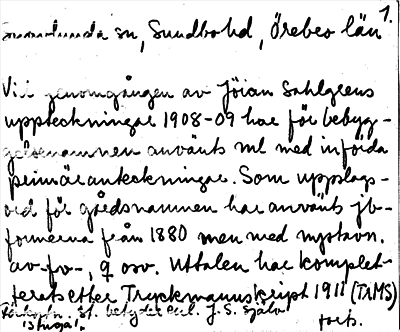 1.
sn, Sundbo hd, Örebro län
Vid genomgången av Jöran Sahlgrens
uppteckningar 1908-09 har för bebyg-
gelsenamnen använts ml med införda
primäranteckningar. Som uppslags-
ord för gårdsnamnen har använts jb-
formerna från 1880 men med nystavn.
av -fv-, q osv. Uttalen har komplet-
terats efter Tryckmanuskript 1911 (TAMS)
St. betyder enl. J. S. själv
'Stuga'. forts.